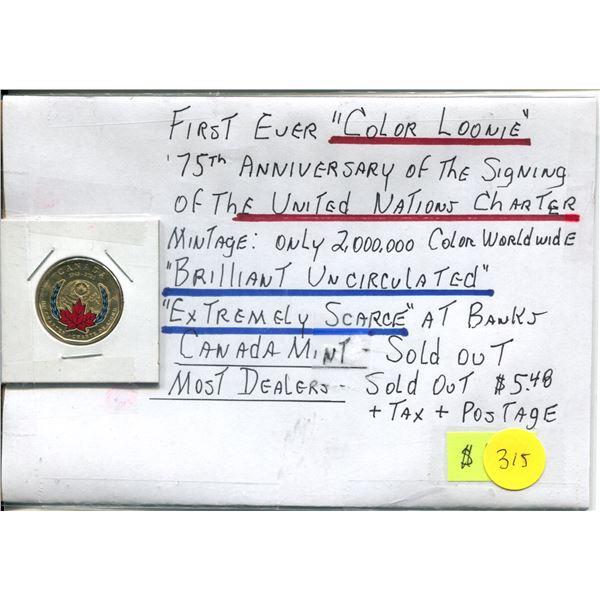 First Ever "Color Loonie"
'75th Anniversary of the Signing
of the United Nations Charter
Mintage: only 2,000,000 Color Worldwide
"Brilliant Uncirculated"
"Extremely Scarce" at Banks
Canada Mint - Sold out
Most Dealers - Sold out $5.48
+ Tax + Postage
CANADA
$
315